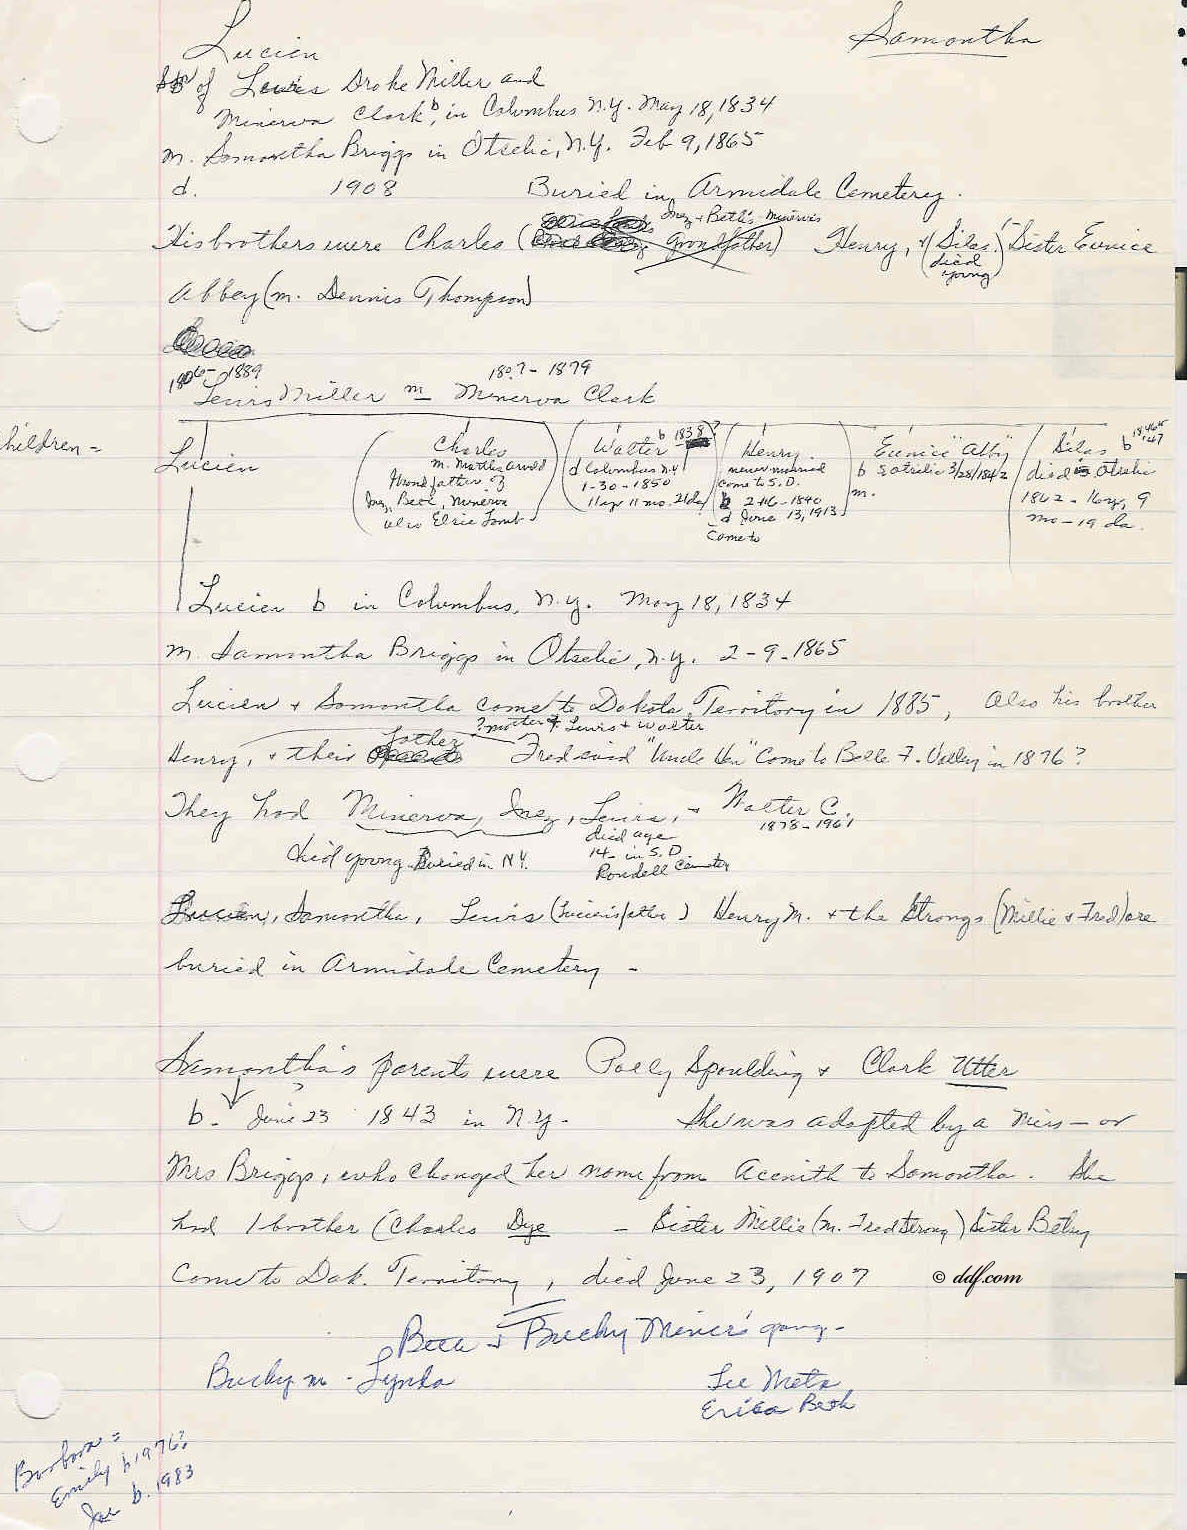 Samantha
Lucien
of Lewis Drake Miller and
Minerva Clark, b in Columbus N.Y. May 18, 1834
m. Samantha Briggs in Otselic, N.Y. Feb 9, 1865
d. 1908 Buried in Armidale Cemetery.
Inez + Beth's Minervis
His brothers were Charles ( Grandfather) Henry, + (Silas.) Sister Eunice
died
young
Abbey (m. Dennis Thompson)
1806- 1889 1807- 1879
Lewis Miller m Minerva Clark
Children =
Lucien
Charles
m. Martha Arnold
Grandfather of
Inez, Beth, Minerva
also Elsie Lamb
Walter b 1838?
d Columbus N.Y
1-30-1850
11 yr 11 mo. 21 da
Henry
never married
came to S.D.
b 2-16-1840
d June 13, 1913
Came to
Eunice "Abby"
b S Otselic 3/28/1842
m.
Silas b 1846 or '47
died Otselic
1862 - 16 yr, 9
mo - 19 da.
Lucien b in Columbus, N.Y. May 18, 1834
m. Samantha Briggs in Otselic, N.Y. 2-9-1865
Lucien + Samantha came to Dakota Territory in 1885, Also his brother
? mother of Lewis + Walter
father
Henry, + their Fred said "Uncle Hen" Came to Belle F. Valley in 1876?
They had Minerva, Inez, Lewis, + Walter C.
1878-1961
died young Buried in N.Y.
died age
14 - in S.D
Rondell Cemetery
Lucien, Samantha, Lewis (Lucien's father) Henry M. + the Strongs (Millie + Fred) are
buried in Armidale Cemetery -
Samantha's parents were Polly Spoulding + Clark Utter
b. June 23 ? 1843 in N.Y. - She was adopted by a Miss - or
Mrs Briggs, who changed her name from Acenith to Samantha. She
had 1 brother (Charles Dye - Sister Millie (m. Fred Strong) Sister Betsy
Came to Dak. Territory, died June 23, 1907
© ddf.com
Beca + Bucky Miner's gang -
Bucky m - Lynda
Lee Meta
Erica Beth
Barbara =
Emily b 1976?
Joe b. 1983